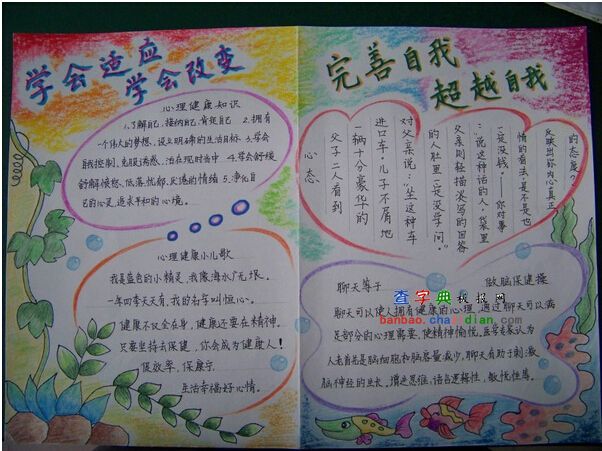 学会适应
学会改变
心理健康知识
1.了解自己、接纳自己、肯定自己 2.拥有
一个伟大的梦想、设立明确的生活目标 3.学会
自我控制、克服诱惑、活在现时当中 4.学会舒缓
舒解愤怒、低落、忧郁、厌倦的情绪 5.净化自
己的心灵、追求平和的心境。
心理健康小儿歌
我是蓝色的小精灵,我像海水广无垠。
一年四季天天有,我的名字叫恒心。
健康不仅全在身,健康还要在精神。
只要坚持去保健,你会成为健康人!
促效率,保康宁
生活幸福好心情。
完善自我
超越自我
心态
父子二人看到
一辆十分豪华的
进口车。儿子不屑地
对父亲说:"坐这种车
的人肚里一定没学问。"
父亲则轻描淡写的回答
:"说这种话的人,袋里
一定没钱。"——你对事
情的看法,是不是也
反映出你内心真正
的态度?
聊天等于 做脑保健操
聊天可以使人拥有健康的心理,通过聊天可以满
足部分的心理需要,使精神愉悦。医学家认为
人老首先是脑细胞和脑容量减少,聊天有助于刺激
脑神经的生长,增进思维、语言逻辑性、敏捷性等。
查字典 板报网
banbao.chazidian.com